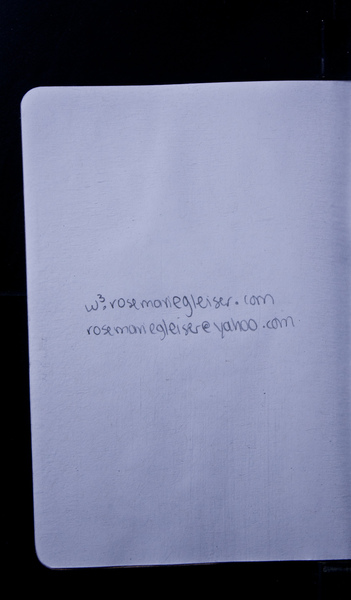 w³.rosemariegleiser.com
rosemariegleiser@yahoo.com